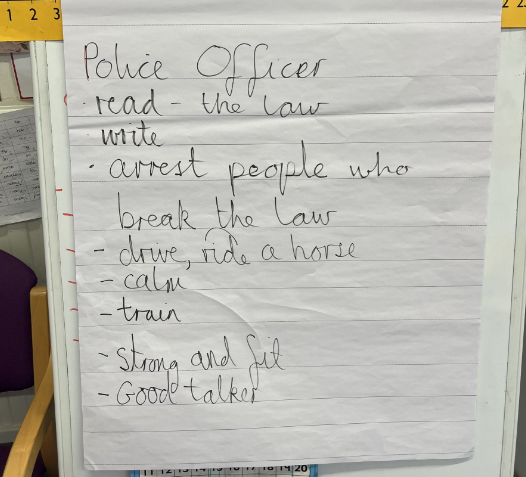 1 2 3
2 2
Police Officer
· read - the law
· write
· arrest people who
break the law
- drive, ride a horse
- calm
- train
- strong and fit
- Good talker
11 12 13 14 15 16 17 18 19 20